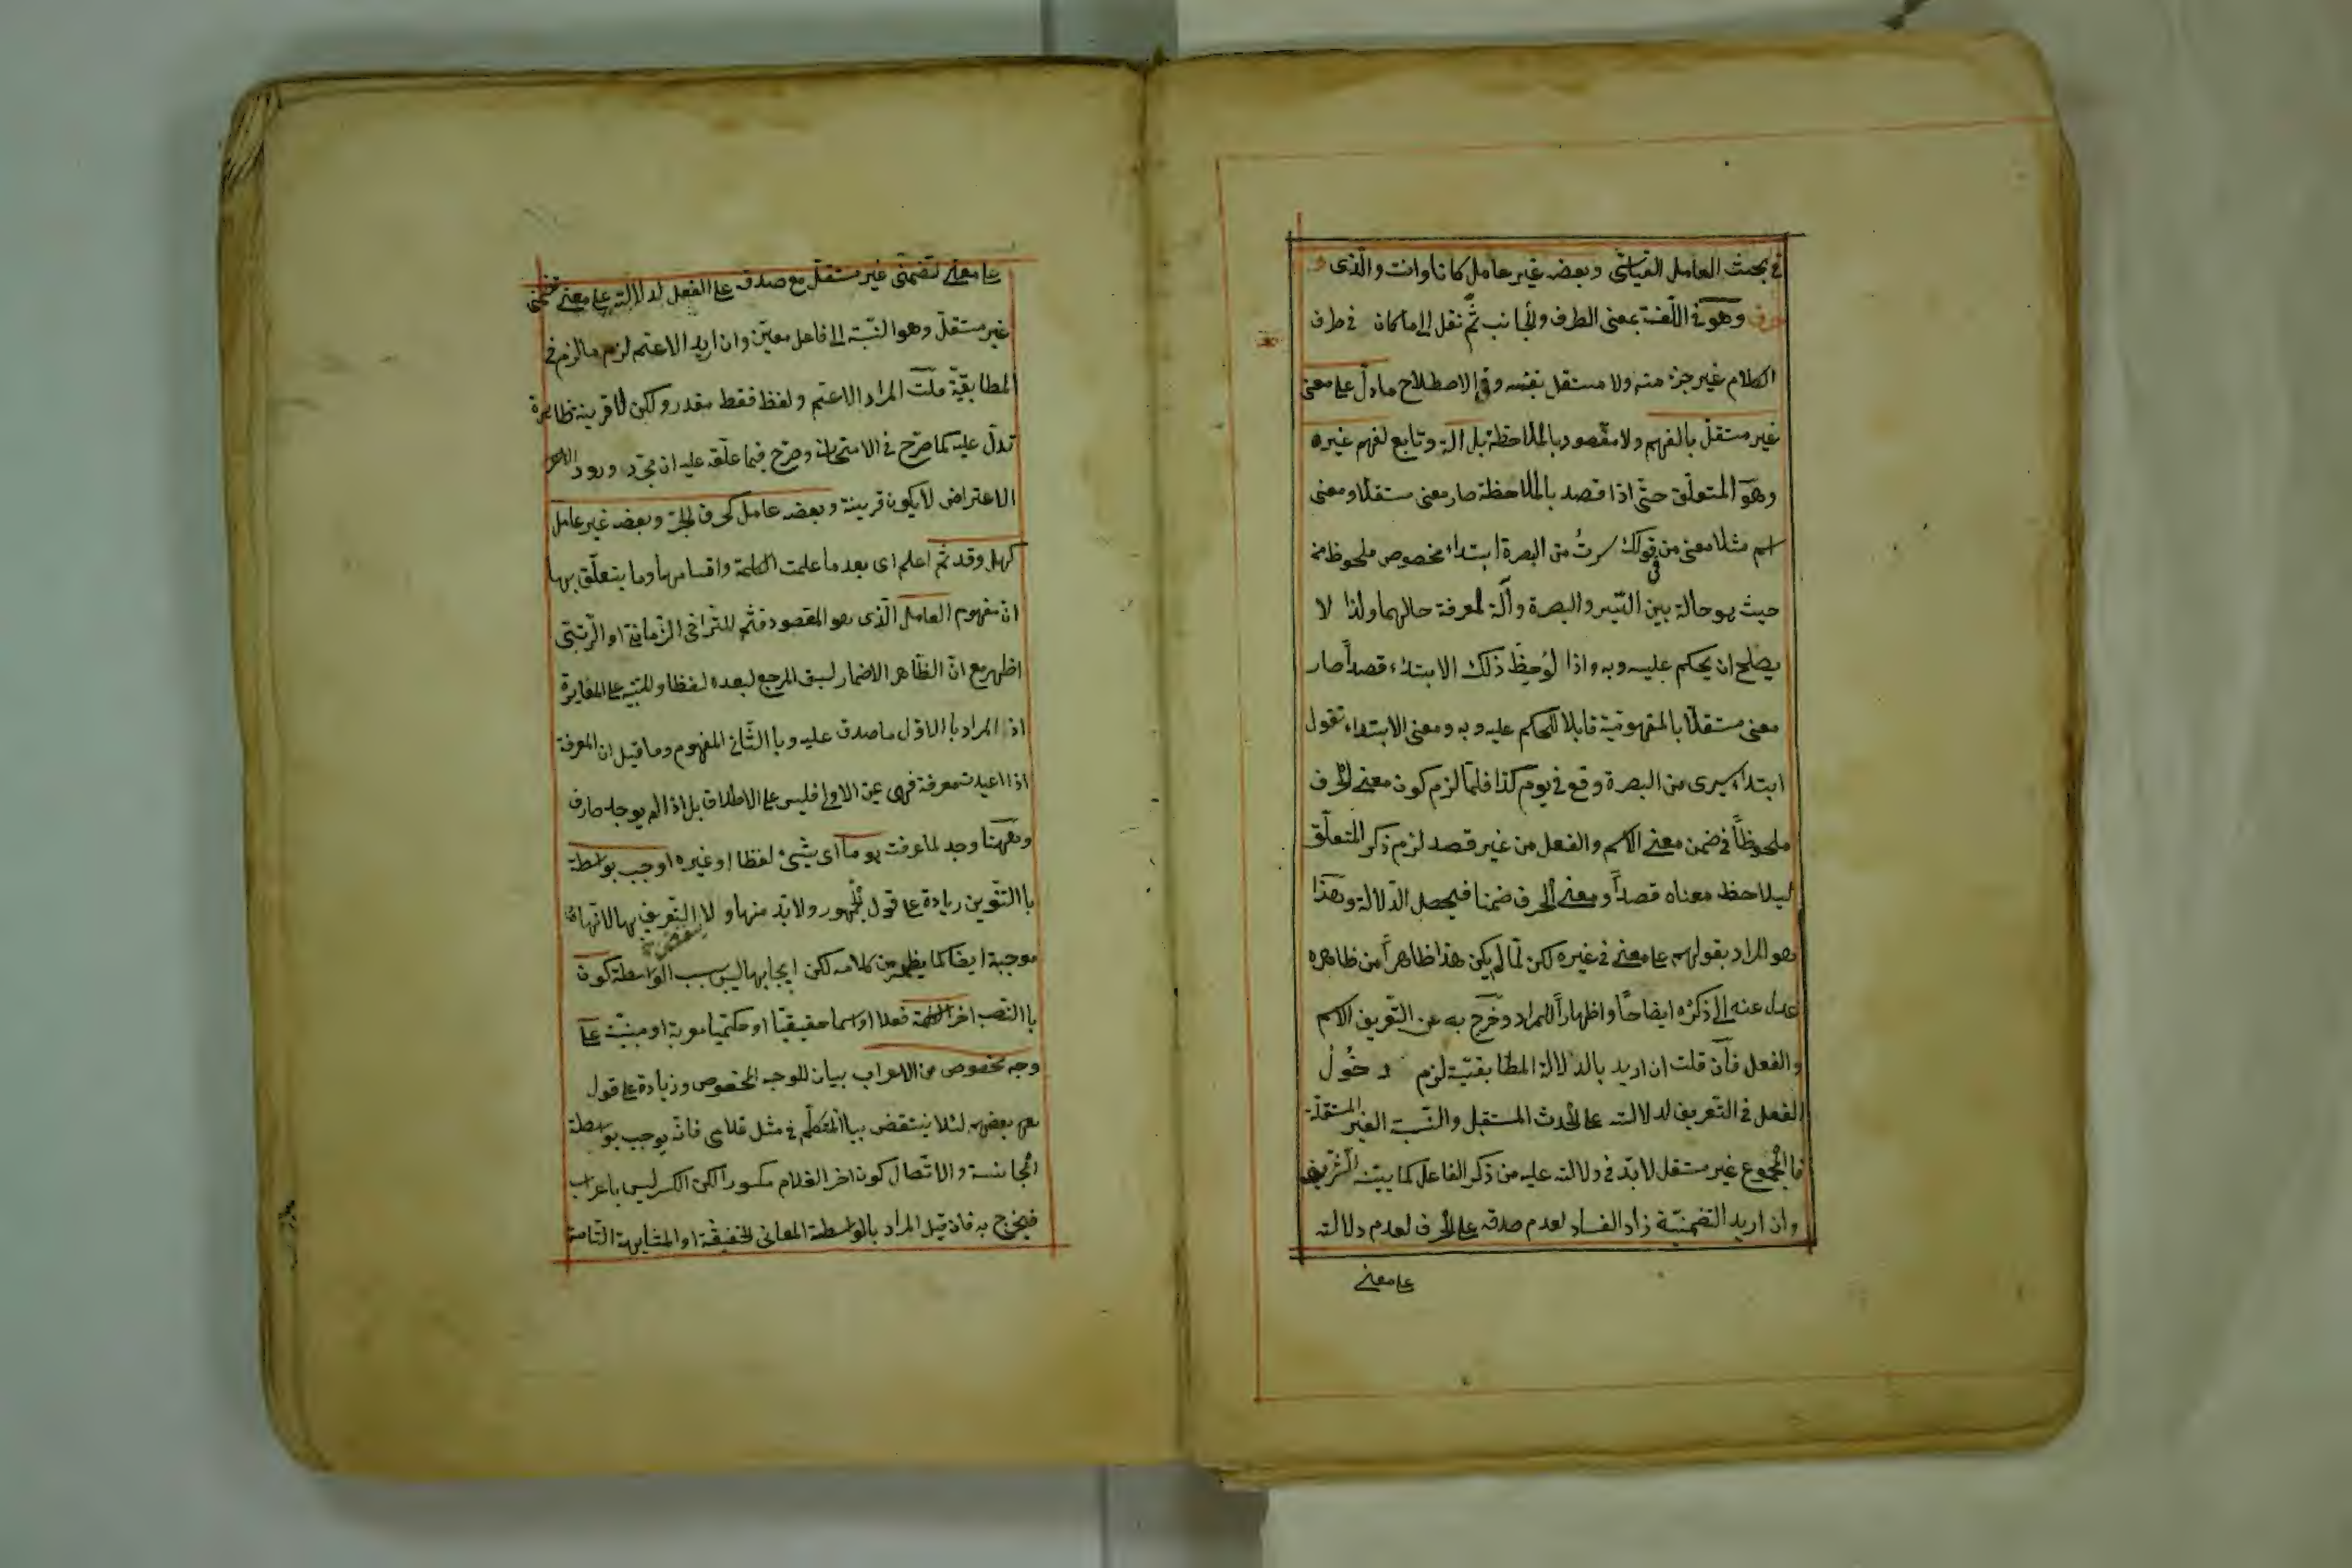 في بحث العامل القياسي وبعضه غير عامل كانا وانت والذى و
حرف وهو في اللّغة بمعنى الطرف والجانب ثمّ نقل الى ما كان في طرف
الكلام غير جزء منه ولا مستقل بنفسه وفي الاصطلاح ما دلّ على معنى
غير مستقلّ بالفهم ولا مقصود بالملاحظة بل آلة وتابع لفهم غيره
وهو المتعلّق حتّى اذا قصد بالملاحظة صار معنى مستقلا ومعنى
اسم مثلا معنى من في قولك سرتُ من البصرة ابتداء مخصوص ملحوظ من
حيث هو حالة بين السّير والبصرة وآلة لمعرفة حالهما ولذا لا
يصلح ان يحكم عليه وبه واذا لوُحِظَ ذلك الابتداء قصداً صار
معنى مستقلّا بالمفهوميّة قابلا للحكم عليه وبه ومعنى الابتداء تقول
ابتداء سيرى من البصرة وقع في يوم كذا فلمّا لزم كون معنى الحرف
ملحوظاً في ضمن معنى الاسم والفعل من غير قصد لزم ذكر المتعلّق
ليلاحظ معناه قصداً ومعنى الحرف ضمنا فيحصل الدّلالة وهذا
هو المراد بقولهم على معنى في غيره لكن لمّا لم يكن هذا ظاهراً من ظاهره
عدل عنه الى ذكره ايضاحًا واظهاراً للمراد وخرج به عن التّعريف الاسم
والفعل فآن قلت ان اريد بالدلالة المطابقيّة لزم دخُولُ
الفعل في التّعريف لدلالته على الحدث المستقبل والنّسبة الغير المستقلّة
فالمجموع غير مستقل لابدّ في دلالته عليه من ذكر الفاعل كما بيّنه الشّريف
وان اريد التضمنيّة زاد الفساد لعدم صدقه على الحرف لعدم دلالته
على معنى
على معنى تضمّنى غير مستقلّ مع صدقه على الفعل لدلالته على معنى تضمّنى
غير مستقلّ وهو النّسبة الى فاعل معيّن وان اريد الاعمّ لزم ما لزم في
المطابقيّة قلت المراد الاعمّ ولفظ فقط مقدر ولكن لا قرينة ظاهرة
تدلّ عليه كما صرّح في الامتحان وصرّح فيما علّقه عليه ان مجرّد ورود
الاعتراض لا يكون قرينة وبعضه عامل كحرف الجرّ وبعضه غير عامل
كهل وقد ثمّ اعلم اى بعد ما علمت الكلمة واقسامها وما يتعلّق بها
ان مفهوم العامل الّذى هو المقصود فثمّ للتّراخى الزّمانى او الرّتبىّ
اظهر مع انّ الظّاهر الاضمار لسبق المرجع لبعده لفظا وللتنبيه على المغايرة
اذ المراد بالاوّل ما صدق عليه وبا الثّانى المفهوم وما قيل ان المعرفة
اذا اعيدت معرفة فهى عين الاولى فليس على الاطلاق بل اذا لم يوجد صارف
وههنا وجد لما عرفت هو ما اى شيئ لفظا او غيره اوجب بواسطة
با التّنوين زيادة على قول ولابدّ منها و لا التعريف بها لانّها
موجبة ايضا كما يظهر من كلامه لكن ايجابها ليس بسبب الواسطة كون
با النّصب اخر الكلمة فعلا او اسما حقيقيّا او حكميّا معربة او مبنيّة على
وجه مخصوص من الاعراب بيان للوجه المخصوص وزيادة على قول
بعضهم لئلا ينتقض بياء المتكلّم في مثل غلامى فانّه يوجب بواسطة
المجانسة والاتّصال كون اخر الغلام مكسورا لكن الكسر ليس باعراب
فيخرج به فان قيل المراد بالواسطة المعانى الحقيقة او المشابهة التّامة